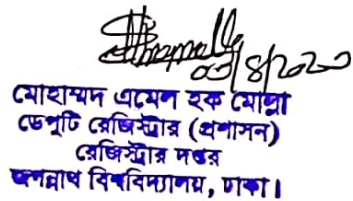 ০৩/৪/২০২৩
মোহাম্মদ এমেল হক মোল্লা
ডেপুটি রেজিস্ট্রার (প্রশাসন)
রেজিস্ট্রার দপ্তর
জগন্নাথ বিশ্ববিদ্যালয়, ঢাকা।